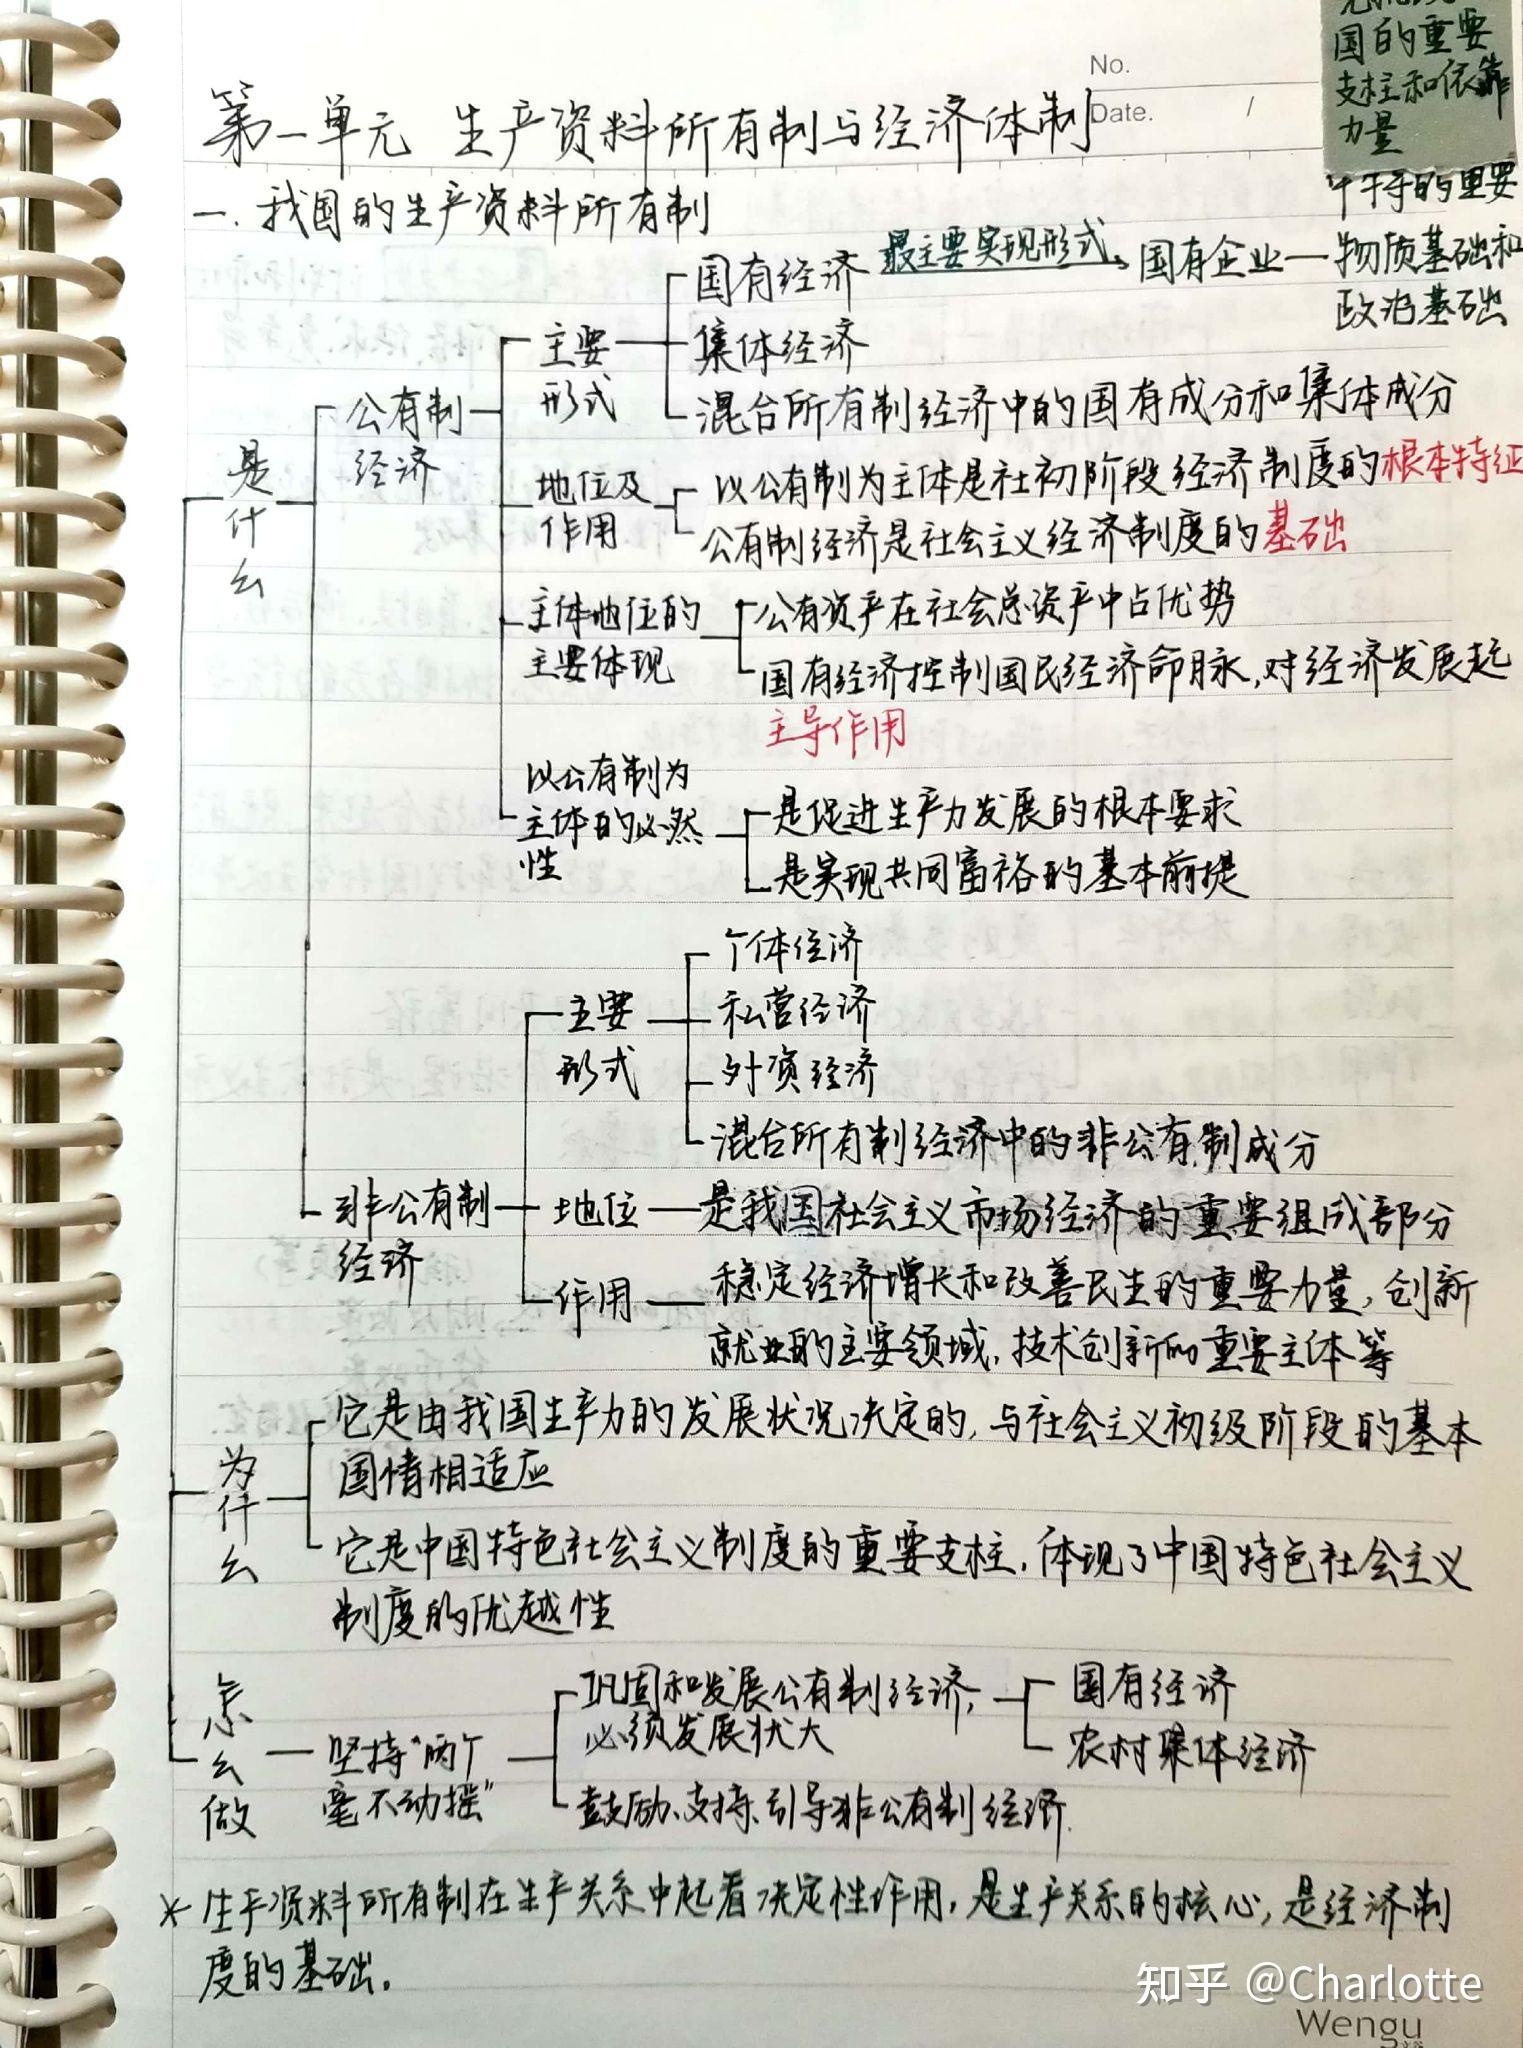 国的重要
支柱和依靠
力量
No.
Date. /
第一单元 生产资料所有制与经济体制
一.我国的生产资料所有制
的重要
国有经济 最主要实现形式 国有企业 物质基础和
政治基础
主要
形式
集体经济
混合所有制经济中的国有成分和集体成分
公有制
经济
是什么
地位及
作用
以公有制为主体是社初阶段经济制度的根本特征
公有制经济是社会主义经济制度的基础
主体地位的
主要体现
公有资产在社会总资产中占优势
国有经济控制国民经济命脉,对经济发展起
主导作用
以公有制为
主体的必然
性
是促进生产力发展的根本要求
是实现共同富裕的基本前提
个体经济
主要
形式
私营经济
外资经济
混合所有制经济中的非公有制成分
非公有制
经济
地位 是我国社会主义市场经济的重要组成部分
作用 稳定经济增长和改善民生的重要力量,创新
就业的主要领域,技术创新的重要主体等
为什么
它是由我国生产力的发展状况决定的,与社会主义初级阶段的基本
国情相适应
它是中国特色社会主义制度的重要支柱,体现了中国特色社会主义
制度的优越性
怎么做
坚持"两个
毫不动摇"
巩固和发展公有制经济,
必须发展状大
国有经济
农村集体经济
鼓励、支持、引导非公有制经济.
* 生产资料所有制在生产关系中起着决定性作用,是生产关系的核心,是经济制
度的基础.
知乎 @Charlotte
Wengu